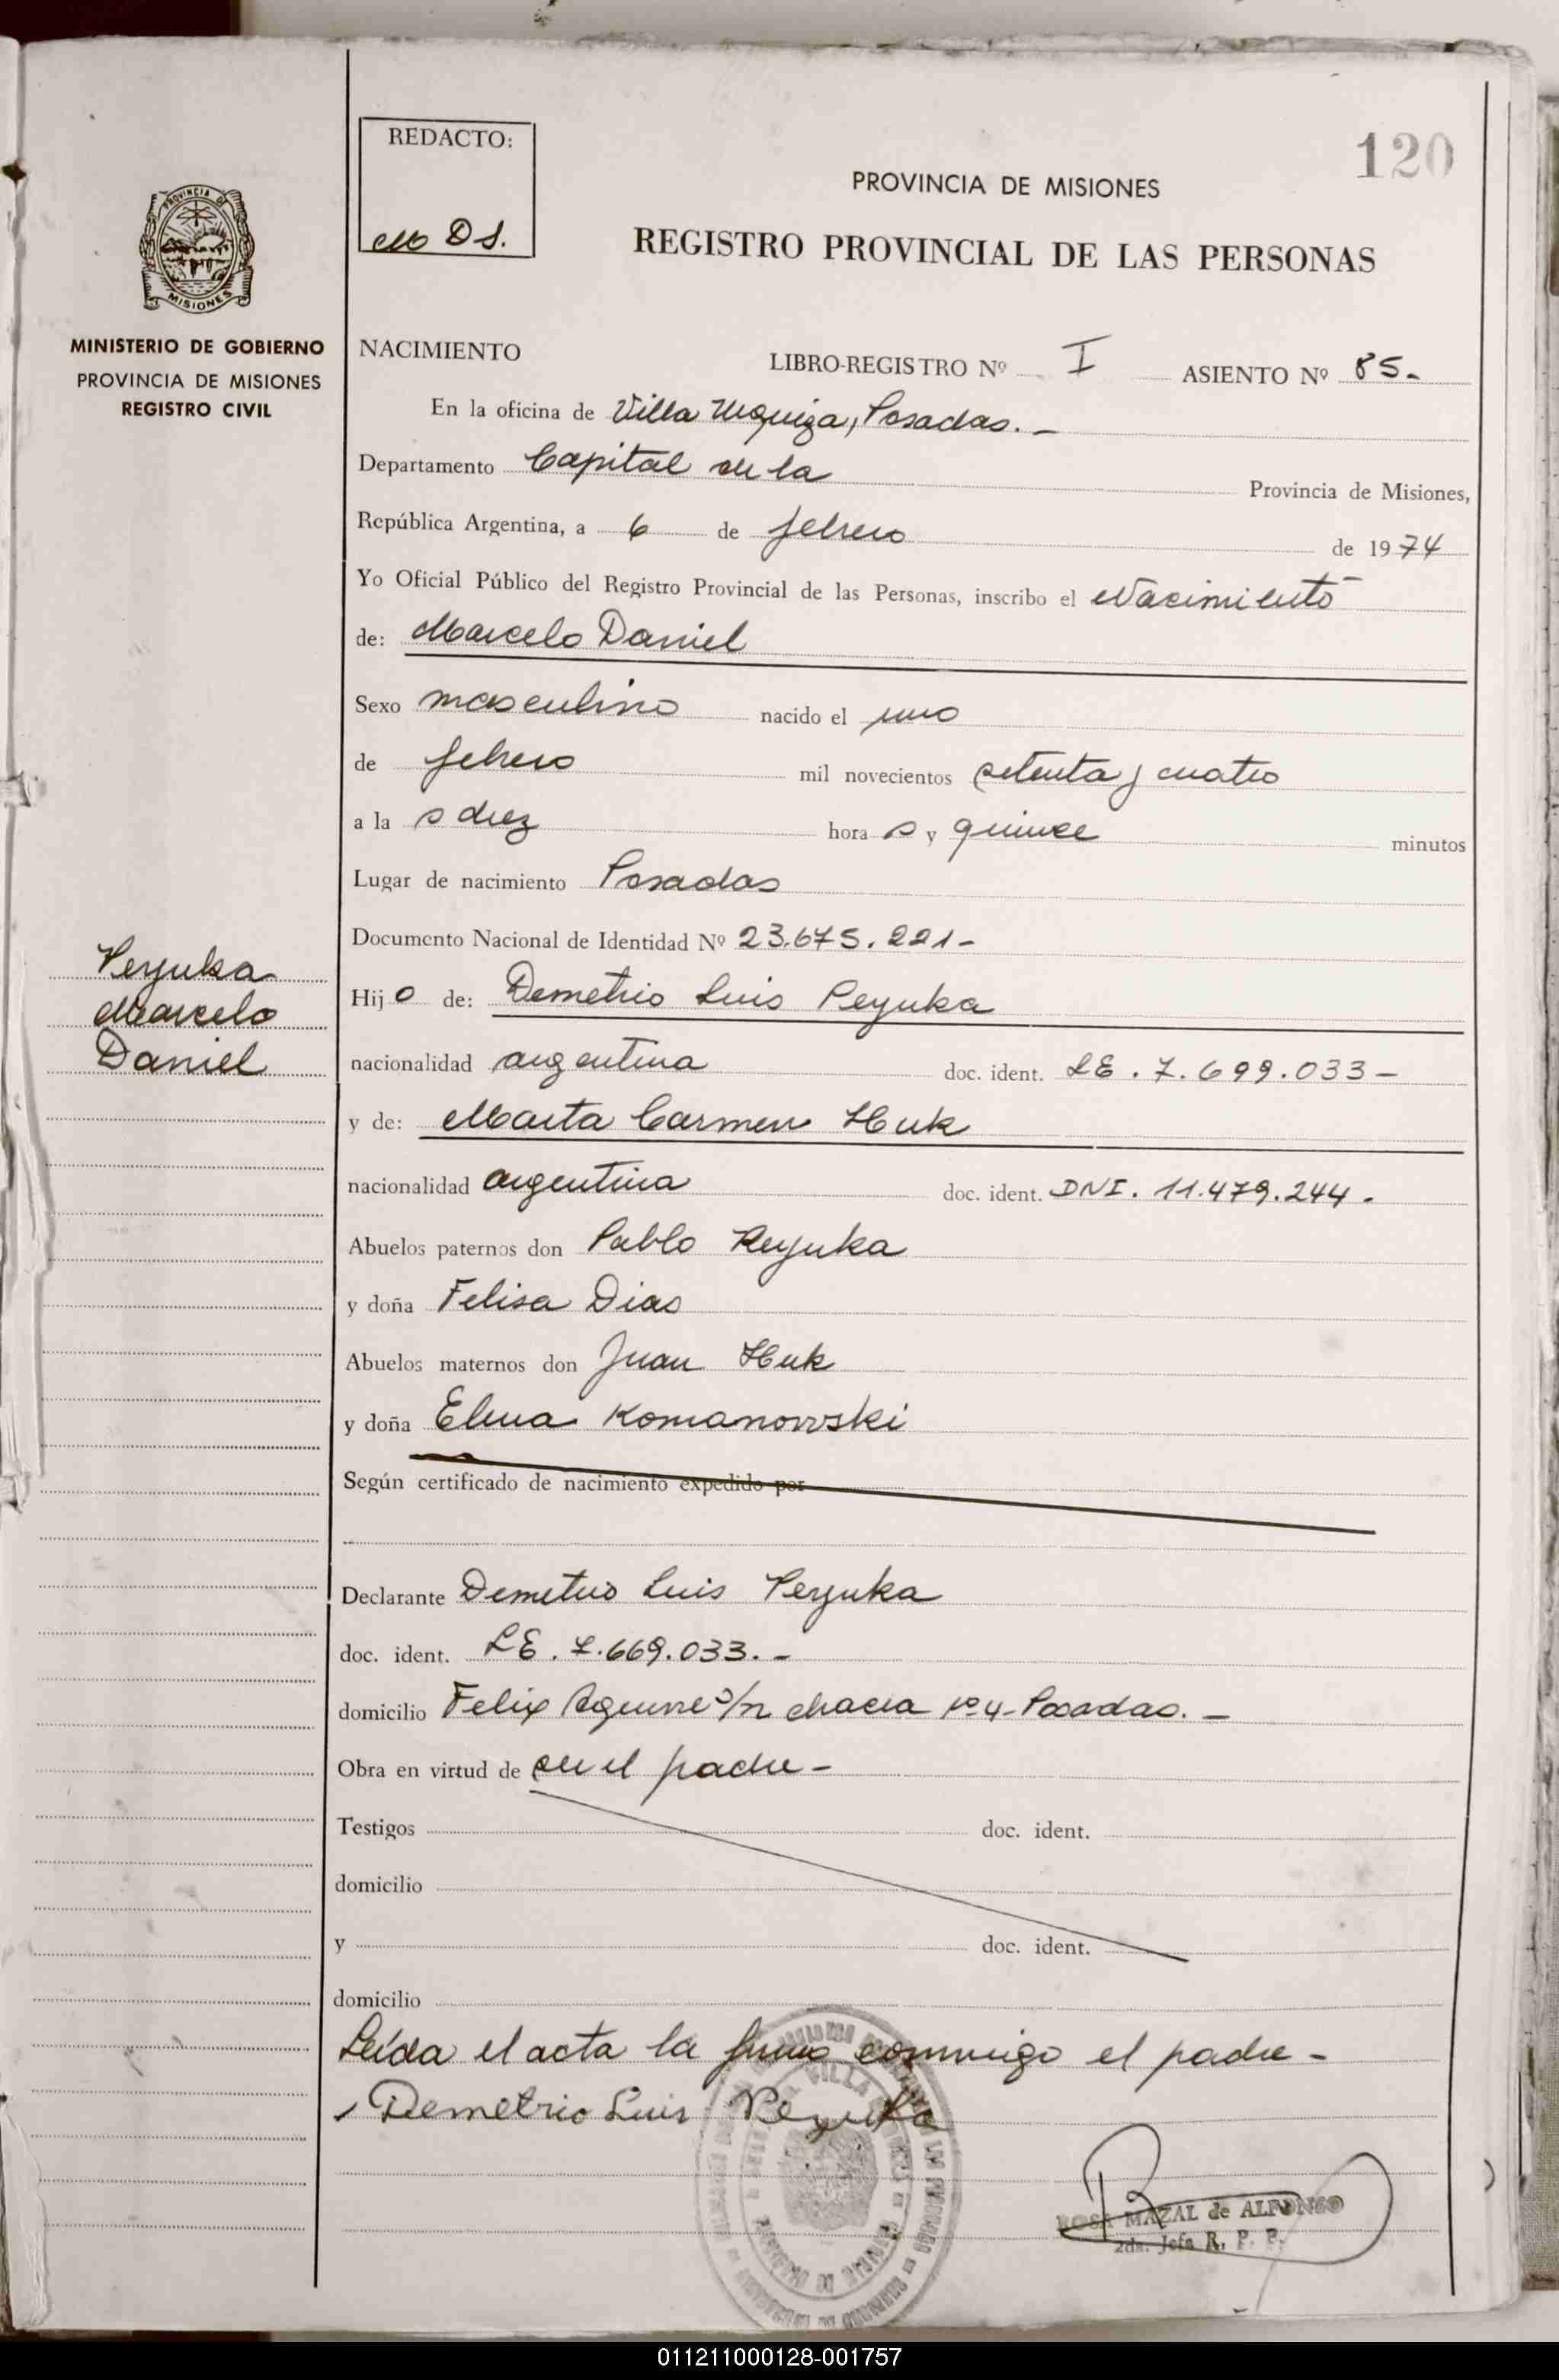 120
REDACTO:
M D S.
PROVINCIA DE MISIONES
REGISTRO PROVINCIAL DE LAS PERSONAS
PROVINCIA DE
MISIONES
MINISTERIO DE GOBIERNO
PROVINCIA DE MISIONES
REGISTRO CIVIL
NACIMIENTO LIBRO-REGISTRO Nº I ASIENTO Nº 85.
En la oficina de Villa Urquiza, Posadas.-
Departamento Capital de la Provincia de Misiones,
República Argentina, a 6 de febrero de 1974
Yo Oficial Público del Registro Provincial de las Personas, inscribo el Nacimiento
de: Marcelo Daniel
Sexo masculino nacido el uno
de febrero mil novecientos setenta y cuatro
a la s diez hora s y quince minutos
Lugar de nacimiento Posadas
Documento Nacional de Identidad Nº 23.675.221-
Peyuka
Marcelo
Daniel
Hijo de: Demetrio Luis Peyuka
nacionalidad argentina doc. ident. LE. 7.699.033-
y de: Marta Carmen Huk
nacionalidad argentina doc. ident. DNI. 11.479.244.
Abuelos paternos don Pablo Peyuka
y doña Felisa Dias
Abuelos maternos don Juan Huk
y doña Elena Komanowski
Según certificado de nacimiento expedido por
Declarante Demetrio Luis Peyuka
doc. ident. LE. 7.669.033.-
domicilio Felix Aguirre s/n chacra Nº 4-Posadas.-
Obra en virtud de ser el padre-
Testigos doc. ident.
domicilio
y doc. ident.
domicilio
Leída el acta la firma conmigo el padre-
Demetrio Luis Peyuka
ROSA MAZAL de ALFONSO
2da. Jefa R. P. P.
011211000128-001757